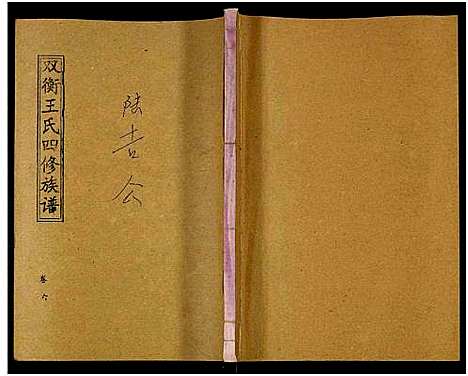 双衡王氏四修族谱
卷六
陆吉公